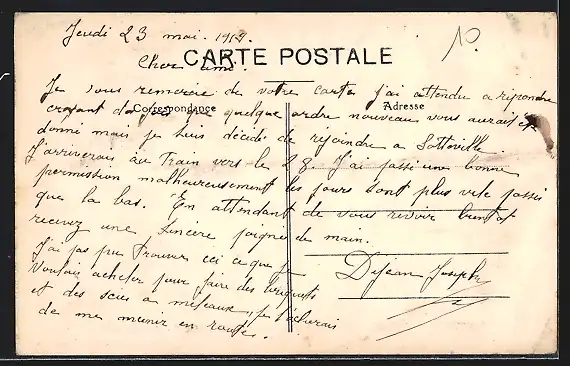 Jeudi 23 mai. 1918.
CARTE POSTALE
Cher ami.
Je vous remercie de votre carte j'ai attendu a répondre
Correspondance
Adresse
croyant que quelque ordre nouveau vous aurais été
donné mais je suis décidé de réjoindre a Sotteville.
J'arriverais au Train vers le 28. J'ai passé une bonne
permission malheureusement les jours sont plus vite passés
que la bas. En attendant de vous revoir bientot
recevez une sincère poigné de main.
J'ai pas pu trouver ici ce que je
Voulais acheter pour faire des briquets
et des scies a métaux, je tâcherais
de me munir en route.
Dejean Joseph